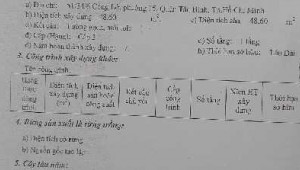 a) Địa chỉ: 51/38/6 Cống Lở, phường 15, Quận Tân Bình, TP.Hồ Chí Minh
b) Diện tích xây dựng: 48.60 m². c) Diện tích sàn: 48.60 m²
d) Kết cấu: tường gạch, mái tôn
đ) Cấp (Hạng): Cấp 4 e) Số tầng: 1 tầng
g) Năm hoàn thành xây dựng: / h) Thời hạn sở hữu: Lâu Dài
3. Công trình xây dựng khác:
Tên công trình
Hạng mục công trình
Diện tích xây dựng (m²)
Diện tích sàn hoặc công suất
Kết cấu chủ yếu
Cấp công trình
Số tầng
Năm HT xây dựng
Thời hạn sở hữu
4. Rừng sản xuất là rừng trồng:
a) Diện tích có rừng:
b) Nguồn gốc tạo lập:
5. Cây lâu năm: